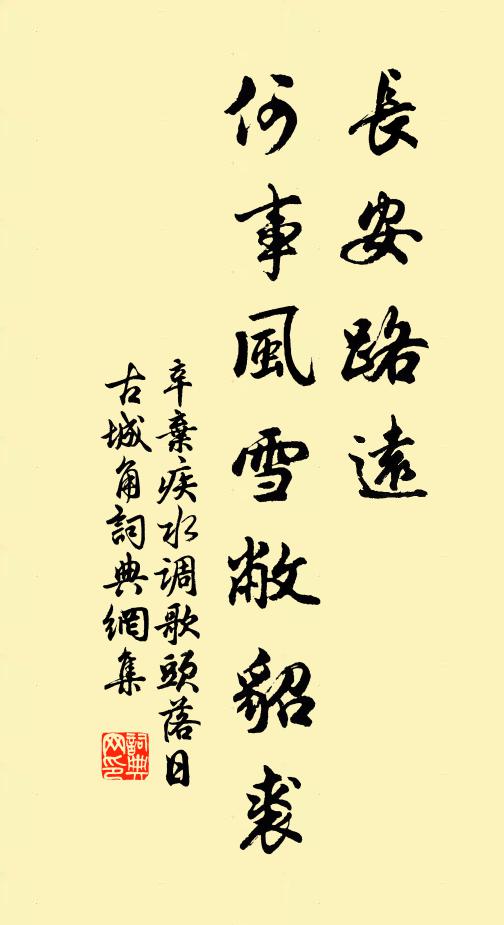 長安路遠
何事風雪敝貂裘
辛棄疾水调歌頭落日
古城角詞典網集
詞典
网印